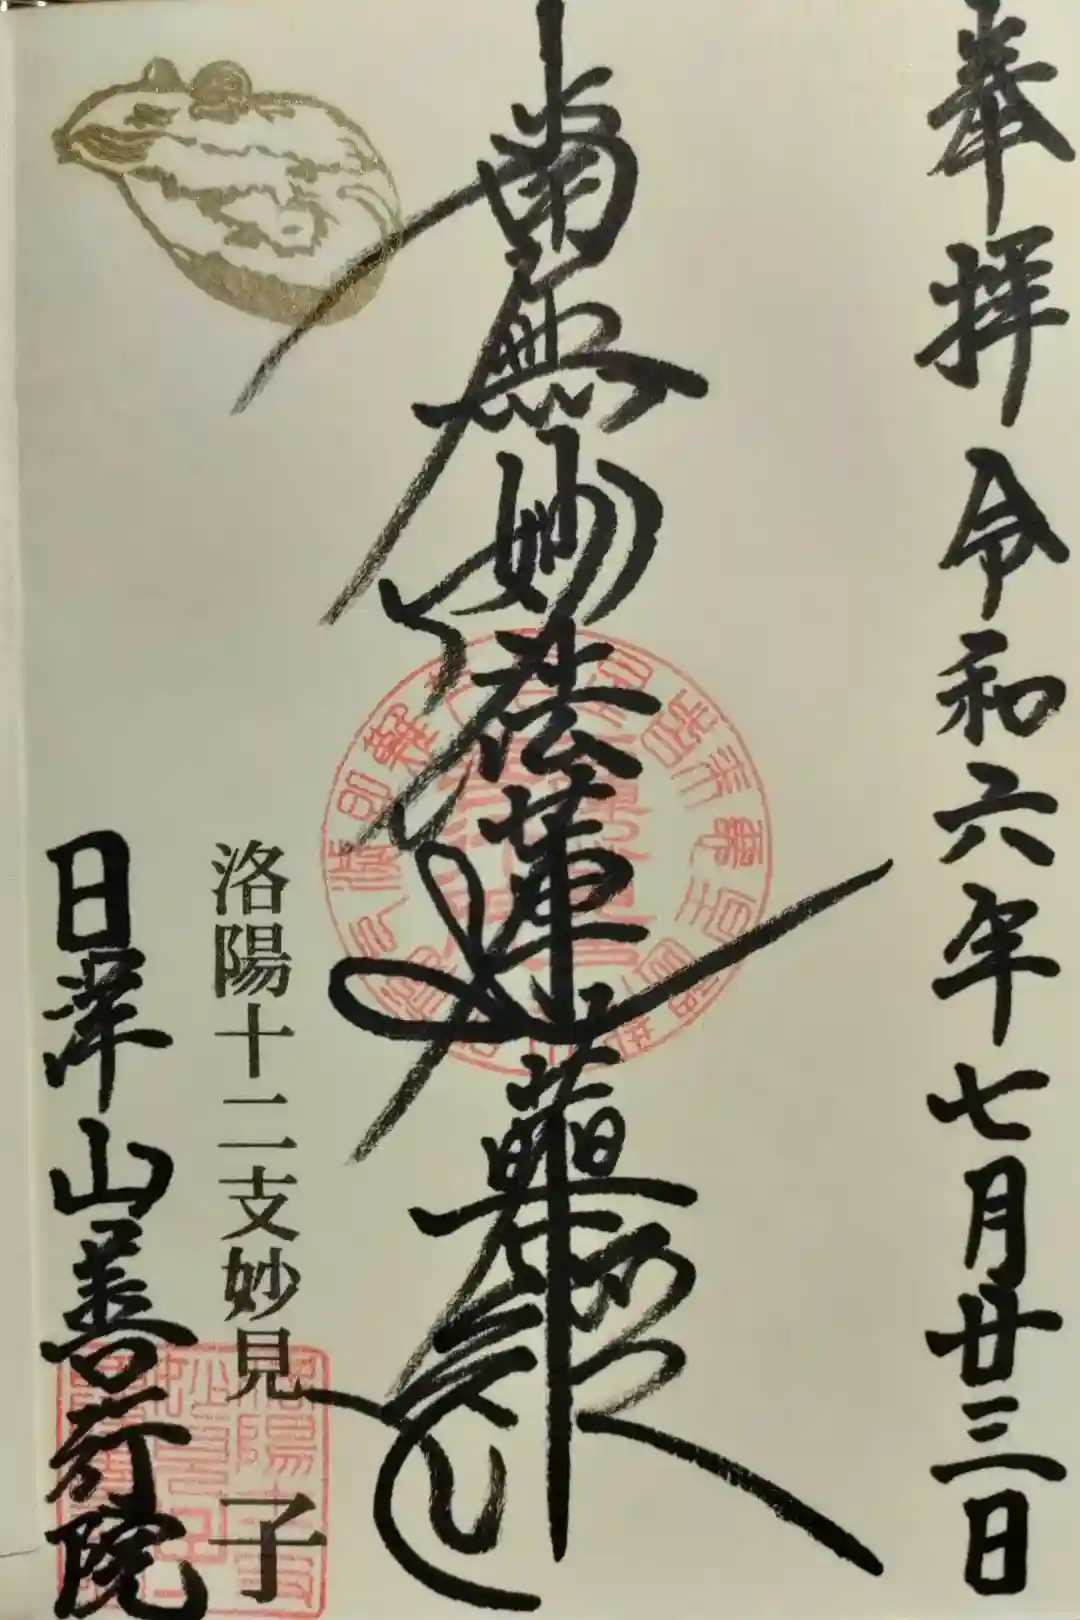 奉拝 令和六年七月廿三日
南無妙法蓮華經
洛陽十二支妙見 子
日 山善行院